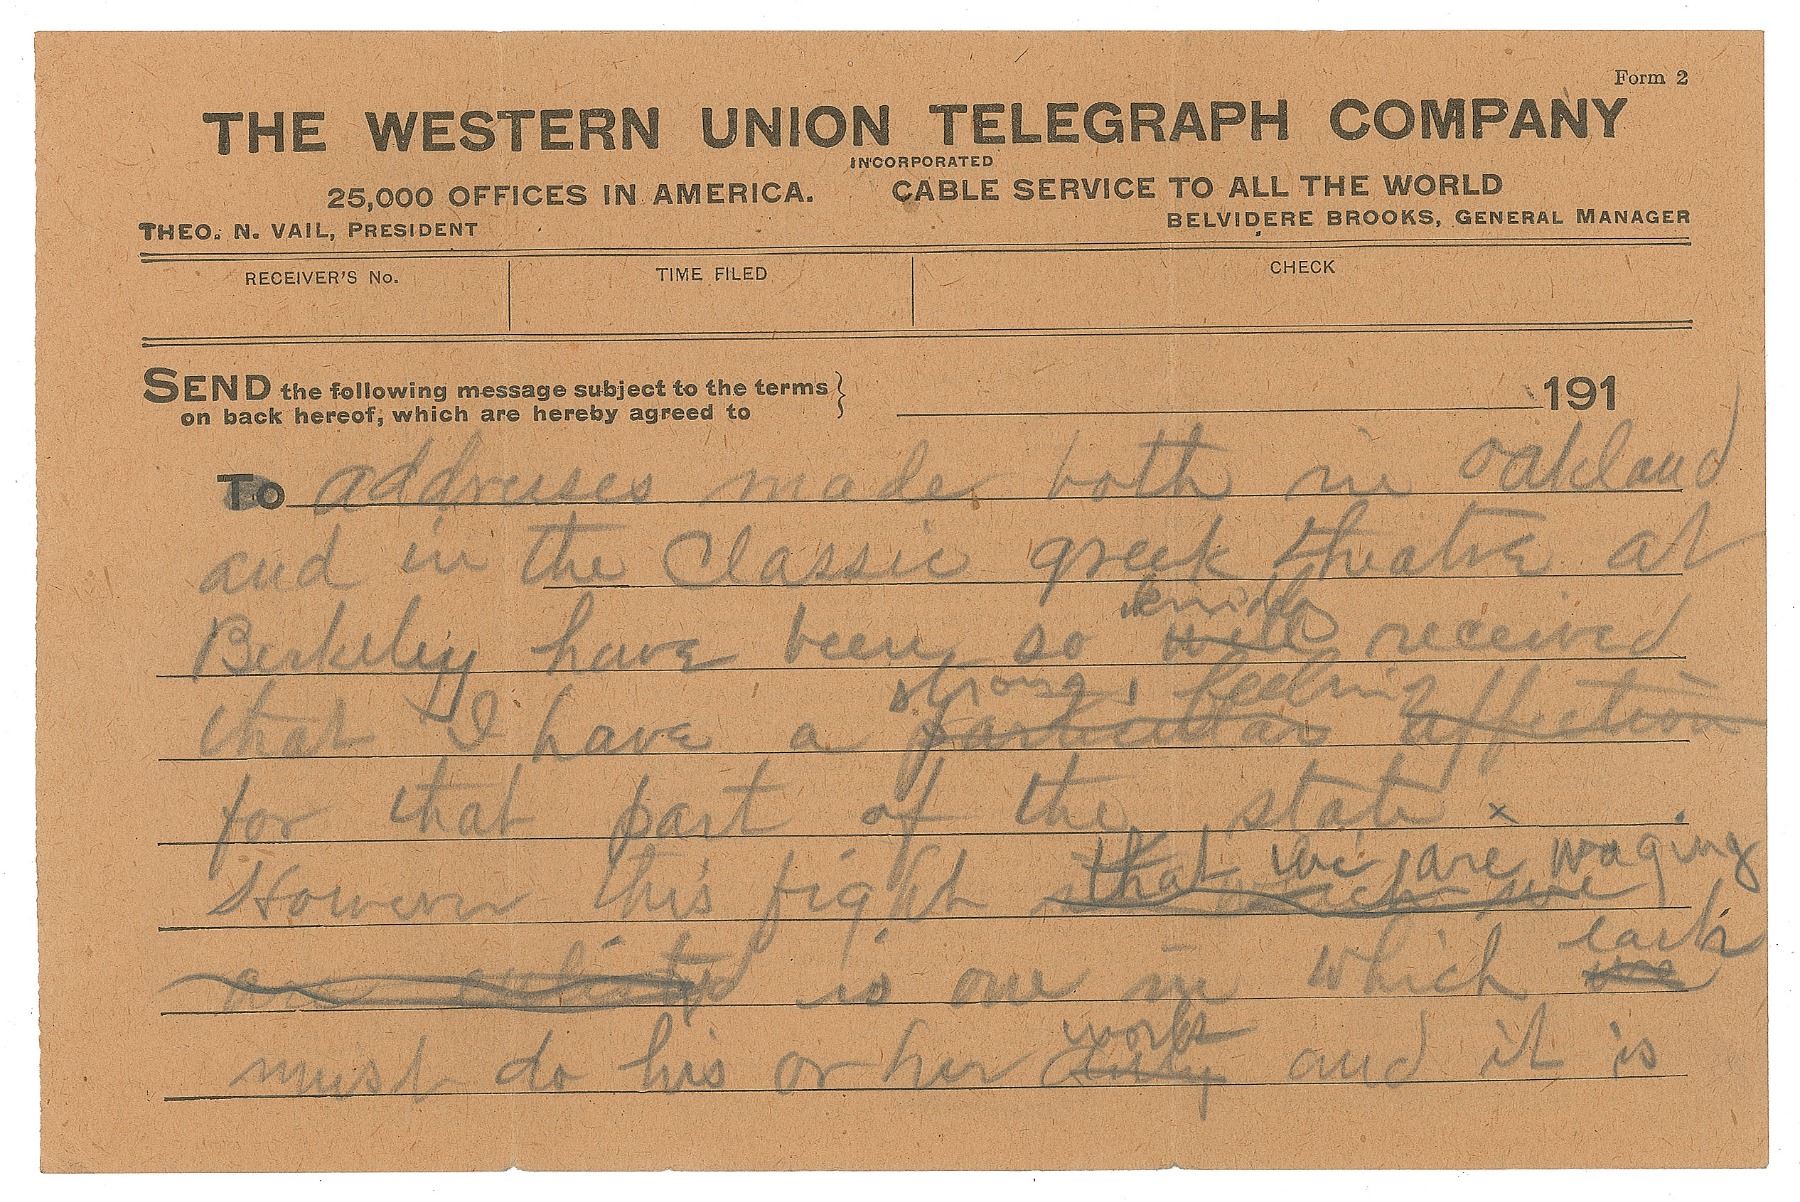 Form 2
THE WESTERN UNION TELEGRAPH COMPANY
INCORPORATED
25,000 OFFICES IN AMERICA. CABLE SERVICE TO ALL THE WORLD
THEO. N. VAIL, PRESIDENT BELVIDERE BROOKS, GENERAL MANAGER
RECEIVER'S No. TIME FILED CHECK
SEND the following message subject to the terms
on back hereof, which are hereby agreed to
191
To addresses made both in Oakland
and in the Classic greek theatre at
kindly
Berkeley have been so well received
strong feeling
that I have a particular affection
for that part of the state x
that we are waging
However this fight we
are enlisted is one in which
each
work
must do his or her duty and it is